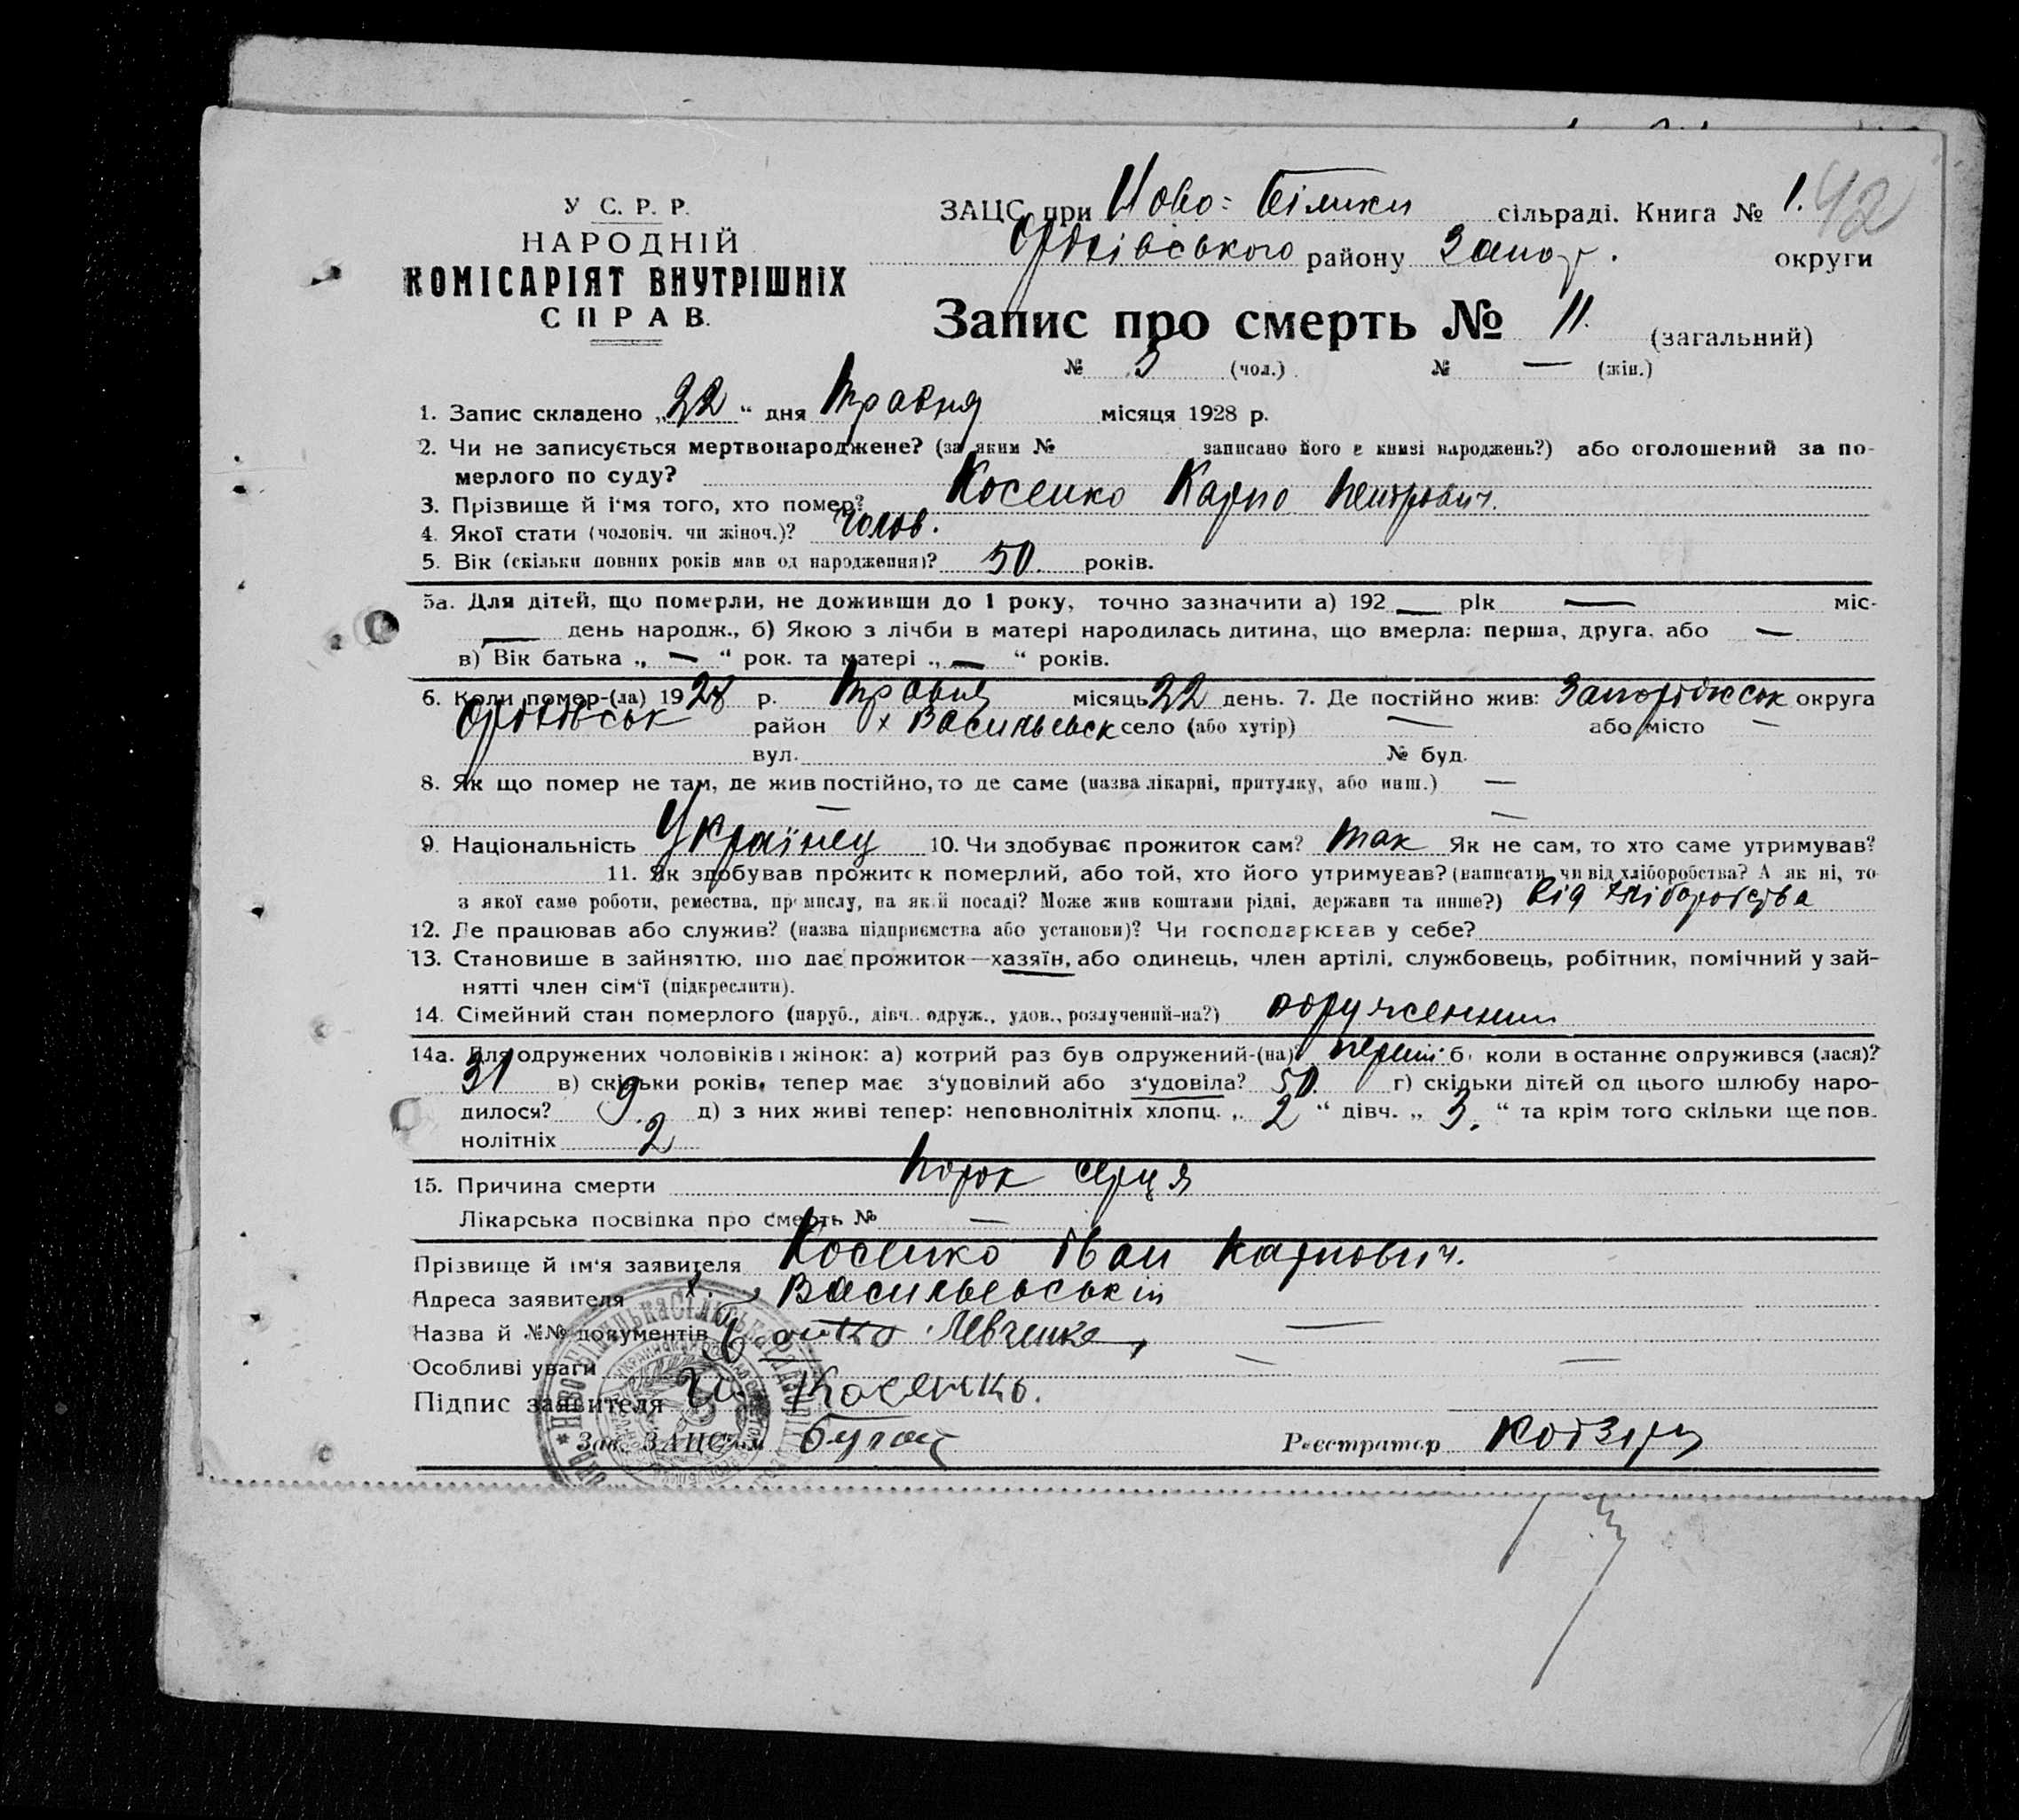 У С. Р. Р.
НАРОДНІЙ
КОМІСАРІЯТ ВНУТРІШНІХ
СПРАВ.
ЗАЦС при Ново-Білики сільраді. Книга № 1. 42
Оріхівського району Запор. округи
Запис про смерть № 11. (загальний)
№ 5 (чол.) № — (жін.)
1. Запис складено „22“ дня травня місяця 1928 р.
2. Чи не записується мертвонароджене? (за яким № записано його в книзі народжень?) або оголошений за по-
мерлого по суду?
3. Прізвище й і'мя того, хто помер? Косенко Карпо Петрович.
4. Якої стати (чоловіч. чи жіноч.)? чолов.
5. Вік (скільки повних років мав од народження)? 50. років.
5а. Для дітей, що померли, не доживши до 1 року, точно зазначити а) 192 — рік — міс-
— день народж., б) Якою з лічби в матері народилась дитина, що вмерла: перша, друга, або —
в) Вік батька „ — “ рок. та матері „ — “ років.
6. Коли помер-(ла) 1928 р. травня місяць 22 день. 7. Де постійно жив: Запоріжськ округа
Оріхівськ район х Васильевск село (або хутір) — або місто —
вул. № буд.
8. Як що помер не там, де жив постійно, то де саме (назва лікарні, притулку, або инш.) —
— —
9. Національність Українец 10. Чи здобуває прожиток сам? так Як не сам, то хто саме утримував?
11. Як здобував прожиток померлий, або той, хто його утримував? (написати, чи від хліборобства? А як ні, то
з якої саме роботи, ремества, промислу, на якій посаді? Може жив коштами рідні, держави та инше?) від хліборобства
12. Де працював або служив? (назва підприємства або установи)? Чи господарював у себе?
13. Становище в зайняттю, що дає прожиток—хазяїн, або одинець, член артілі, службовець, робітник, помічний у зай-
нятті член сім'ї (підкреслити).
14. Сімейний стан померлого (паруб., дівч. одруж., удов., розлучений-на?) одружений
14а. Для одружених чоловіків і жінок: а) котрий раз був одружений-(на)? перш. б) коли в останнє одружився (лася)?
31 в) скільки років тепер має з'удовілий або з'удовіла? 50. г) скільки дітей од цього шлюбу наро-
дилося? 9. д) з них живі тепер: неповнолітніх хлопц. „ 2 “ дівч. „ 3. “ та крім того скільки ще пов-
нолітніх 2
15. Причина смерти порок серця
Лікарська посвідка про смерть № —
Прізвище й ім'я заявителя Косенко Іван Карпович.
Адреса заявителя х. Васильевськ
Назва й №№ документів Левченка —
Особливі уваги — —
Підпис заявителя Косенко.
Зав. ЗАЦС'ом Бугай Реєстратор Кобзар